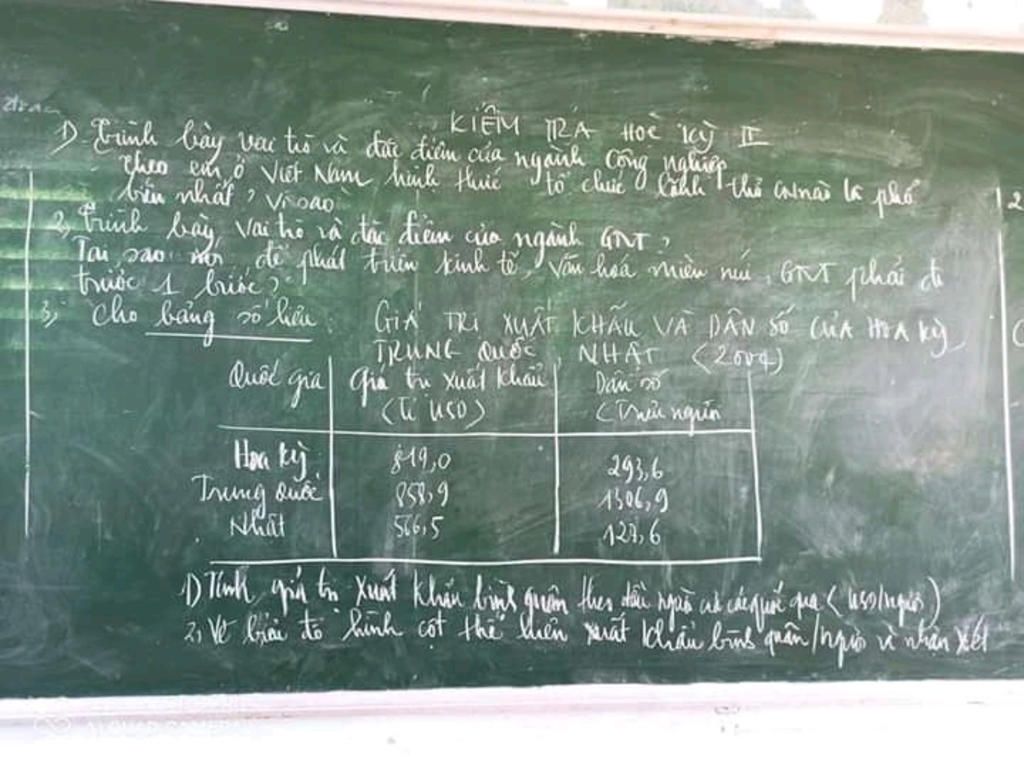 KIỂM TRA HỌC KỲ II
1) Trình bày vai trò và đặc điểm của ngành công nghiệp
Theo em, ở Việt Nam hình thức tổ chức lãnh thổ CN nào là phổ
biến nhất? Vì sao?
2, Trình bày vai trò và đặc điểm của ngành GTVT?
Tại sao để phát triển kinh tế, văn hoá miền núi, GTVT phải đi
trước 1 bước?
3, Cho bảng số liệu:
GIÁ TRỊ XUẤT KHẨU VÀ DÂN SỐ CỦA HOA KỲ,
TRUNG QUỐC, NHẬT (2004)
Quốc gia Giá trị xuất khẩu Dân số
(Tỉ USD) (Triệu người
Hoa Kỳ 819,0 293,6
Trung Quốc 858,9 1306,9
Nhật 566,5 127,6
1) Tính giá trị xuất khẩu bình quân theo đầu người các quốc gia (USD/người)
2, Vẽ biểu đồ hình cột thể hiện xuất khẩu bình quân/người và nhận xét